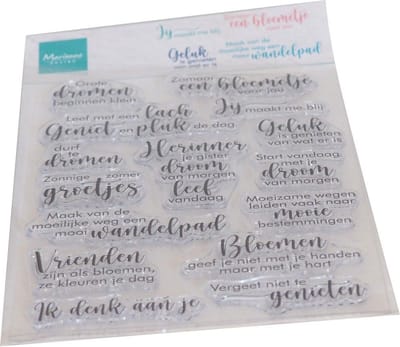 Marianne
DESIGN
Jy
maakt me blij
een bloemetje
Geluk
is genieten
van wat er is
Maak van de
moeilijke weg een
mooi wandelpad
Grote
dromen
beginnen klein
Zomaar
een bloemetje
voor jou
Leef met een lach
Geniet en pluk de dag
Jy
maakt me blij
Geluk
is genieten
van wat er is
durf
te
dromen
Herinner
je gister
droom
van morgen
leef
vandaag
Start vandaag
met je
droom
van morgen
Zonnige zomer
groetjes
Moeizame wegen
leiden vaak naar
mooie
bestemmingen
Maak van de
moeilijke weg een
mooi wandelpad
Vrienden
zijn als bloemen,
ze kleuren je dag
Bloemen
geef je niet met je handen
maar met je hart
Ik denk aan je
Vergeet niet te
genieten